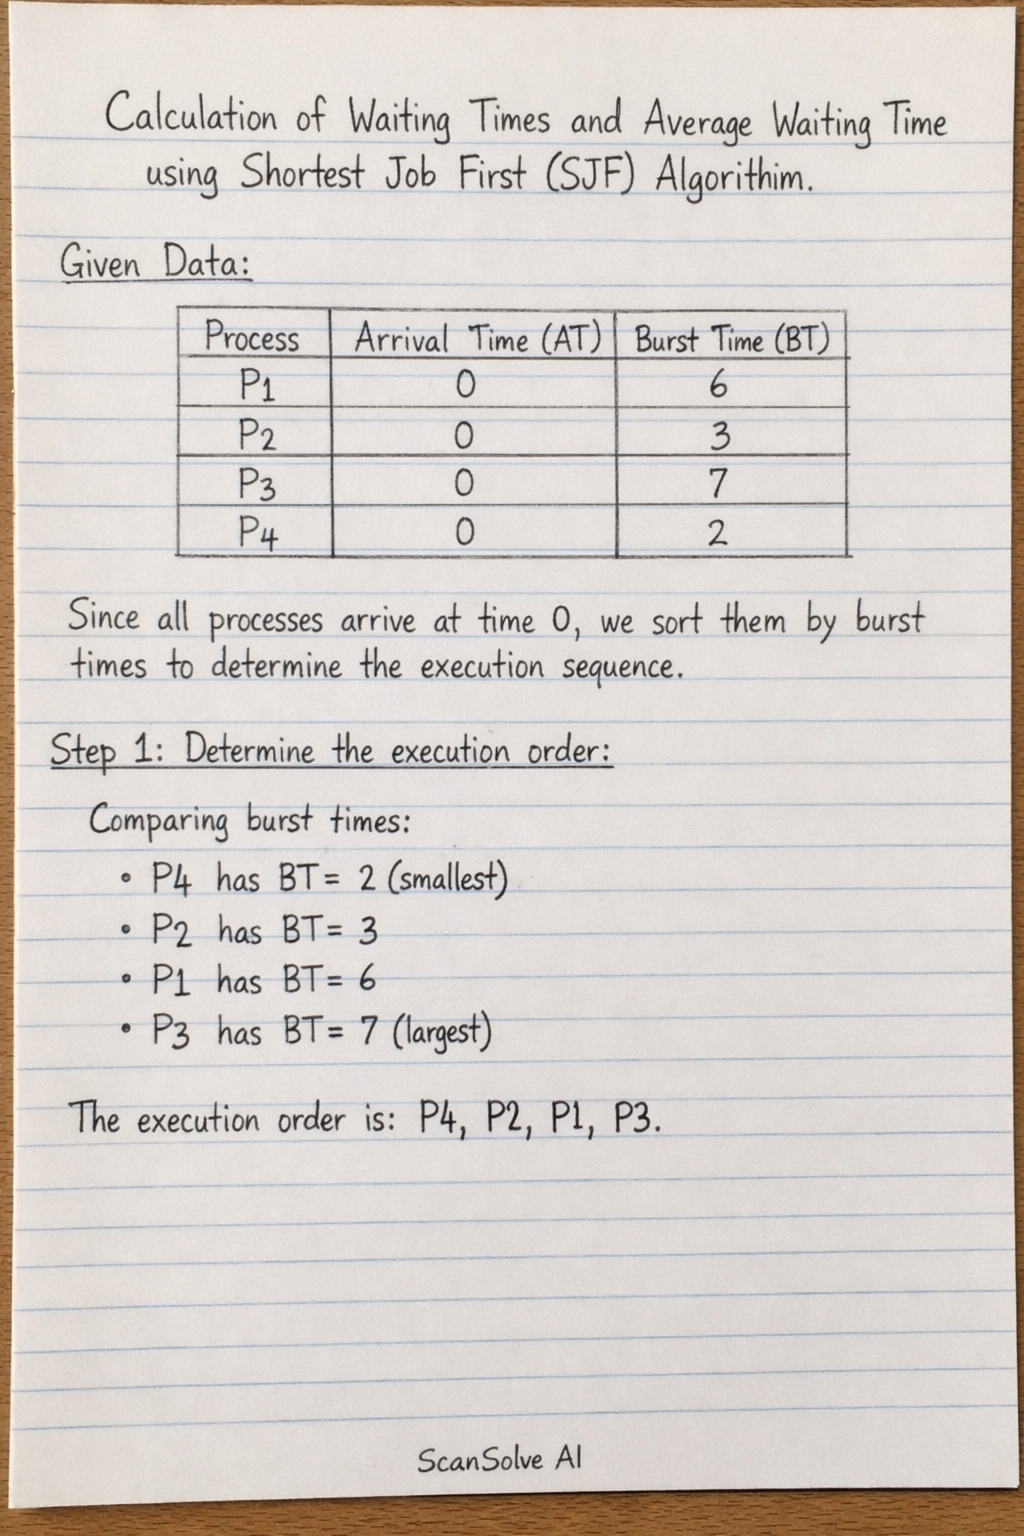 Calculation of Waiting Times and Average Waiting Time
using Shortest Job First (SJF) Algorithim.
Given Data:
Process Arrival Time (AT) Burst Time (BT)
P1 0 6
P2 0 3
P3 0 7
P4 0 2
Since all processes arrive at time 0, we sort them by burst
times to determine the execution sequence.
Step 1: Determine the execution order:
Comparing burst times:
• P4 has BT= 2 (smallest)
• P2 has BT= 3
• P1 has BT= 6
• P3 has BT= 7 (largest)
The execution order is: P4, P2, P1, P3.
ScanSolve AI